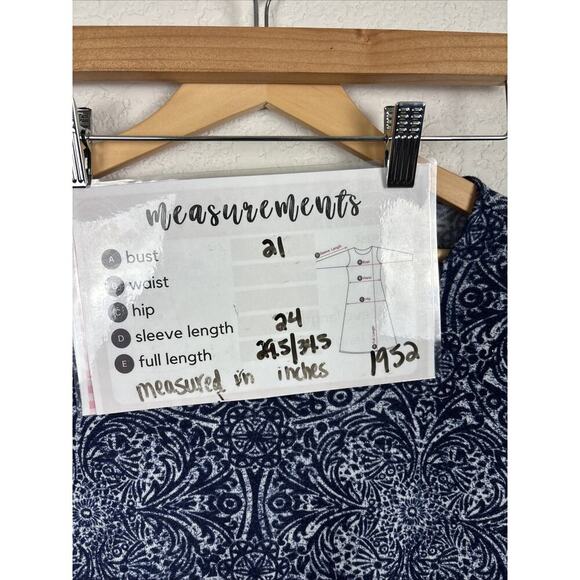 measurements
A bust 21
B waist
C hip
D sleeve length 24
E full length 29.5/34.5
measured in inches 1952